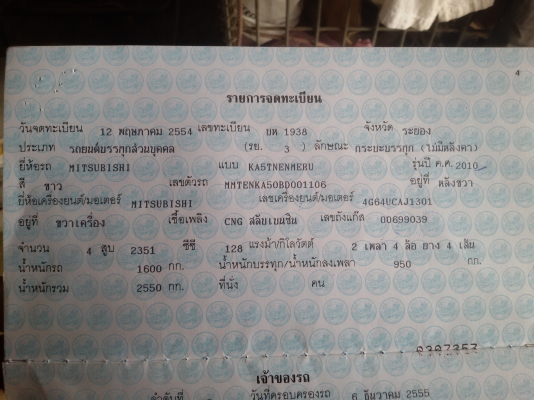 4
รายการจดทะเบียน
วันจดทะเบียน 12 พฤษภาคม 2554 เลขทะเบียน บห 1938 จังหวัด ระยอง
ประเภท รถยนต์บรรทุกส่วนบุคคล (รย. 3 ) ลักษณะ กระบะบรรทุก (ไม่มีหลังคา)
ยี่ห้อรถ MITSUBISHI แบบ KA5TNENMERU รุ่นปี ค.ศ. 2010
สี ขาว เลขตัวรถ MMTENKA50BD001106 อยู่ที่ หลังขวา
ยี่ห้อเครื่องยนต์/มอเตอร์ MITSUBISHI เลขเครื่องยนต์/มอเตอร์ 4G64UCAJ1301
อยู่ที่ ขวาเครื่อง เชื้อเพลิง CNG สลับเบนซิน เลขถังแก๊ส 00699039
จำนวน 4 สูบ 2351 ซีซี 128 แรงม้า/กิโลวัตต์ 2 เพลา 4 ล้อ ยาง 4 เส้น
น้ำหนักรถ 1600 กก. น้ำหนักบรรทุก/น้ำหนักลงเพลา 950 กก.
น้ำหนักรวม 2550 กก. ที่นั่ง คน
เจ้าของรถ
ลำดับที่ วันที่ครอบครองรถ 6 ธันวาคม 2555